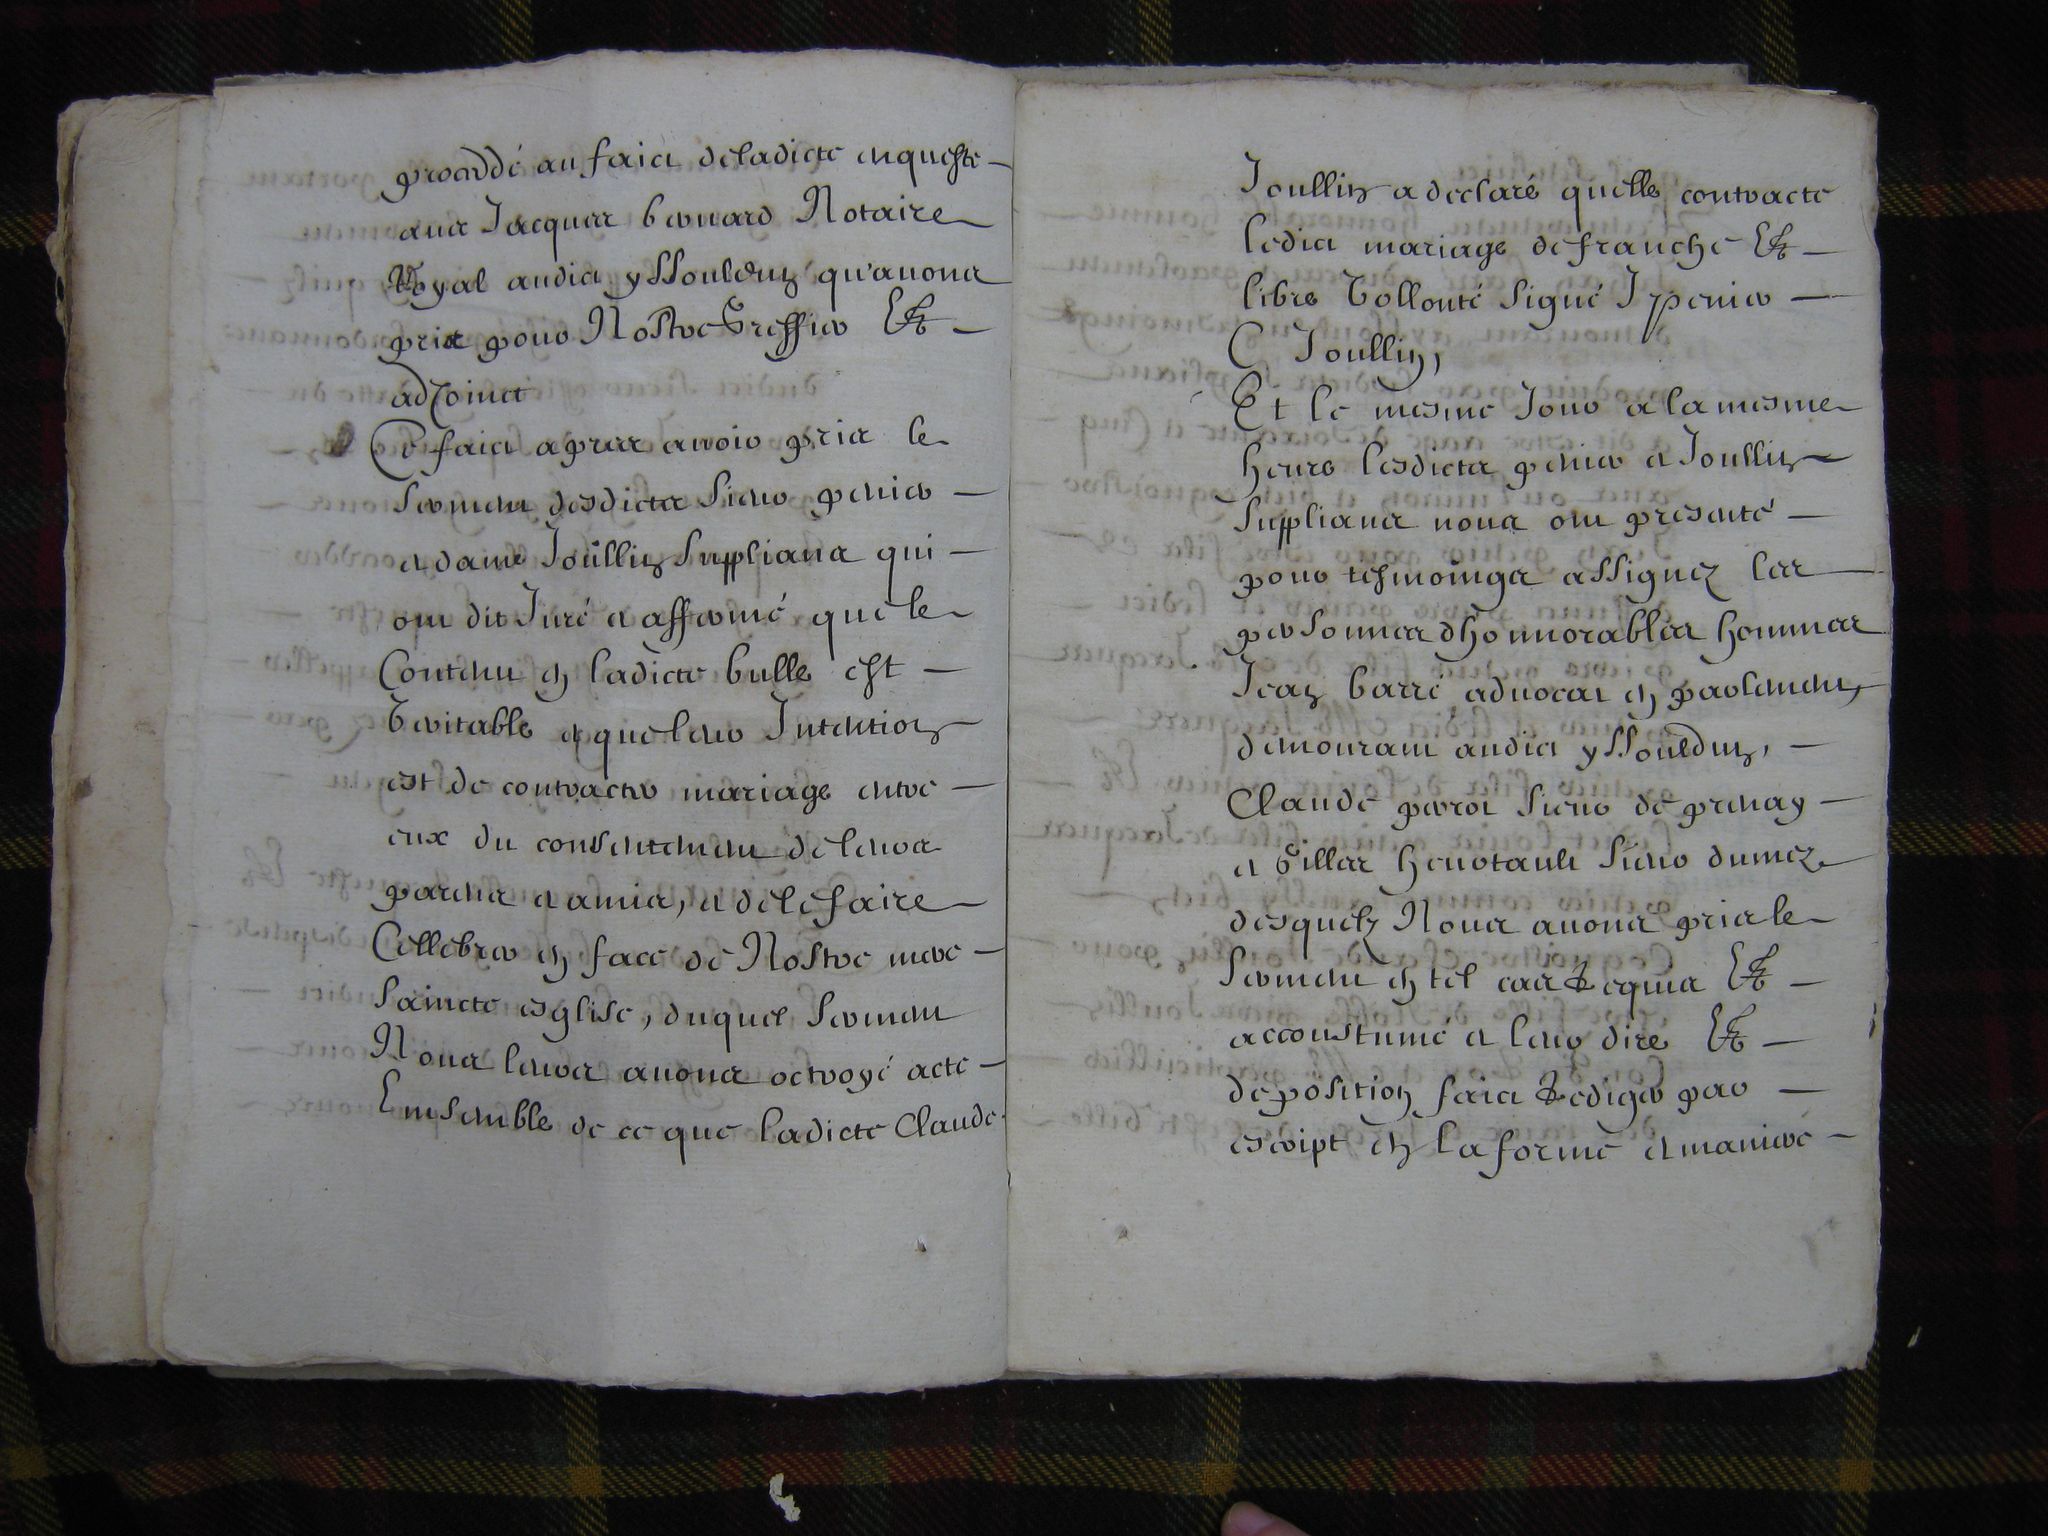 proceddé au faict de ladicte enqueste
avec Jacques bernard Notaire
Royal audict yssouldun qu'avons
pris pour Nostre Greffier Et
adjoinct
Ce faict apres avoir pris le
serment desdictz sieur penier
et dame Joullin supplians qui
ont dit Juré et affermé que le
Contenu en ladicte bulle est
veritable et que leur Intention
est de contracter mariage entre
eux du consentement de leurs
parens et amis, et de le faire
Cellebrer en face de Nostre mere
saincte esglise, duquel serment
Nous leurs avons octroyé acte
Ensemble de ce que ladicte Claude
Joullin a declaré quelle contracte
ledict mariage de franche Et
libre vollonté signé J penier
C Joullin,
Et le mesme Jour a la mesme
heure lesdictz penier et Joullin
supplians nous ont presenté
pour tesmoings assignez les
personnes d'honnorables hommes
Jean barré advocat en parlement
demourant audict yssouldun,
Claude perot sieur de prenay
et Gilles heurtault sieur dumez
desquelz Nous avons pris le
serment en tel cas Requis Et
accoustumé et leur dire Et
deposition faict Rediger par
escript en la forme et maniere